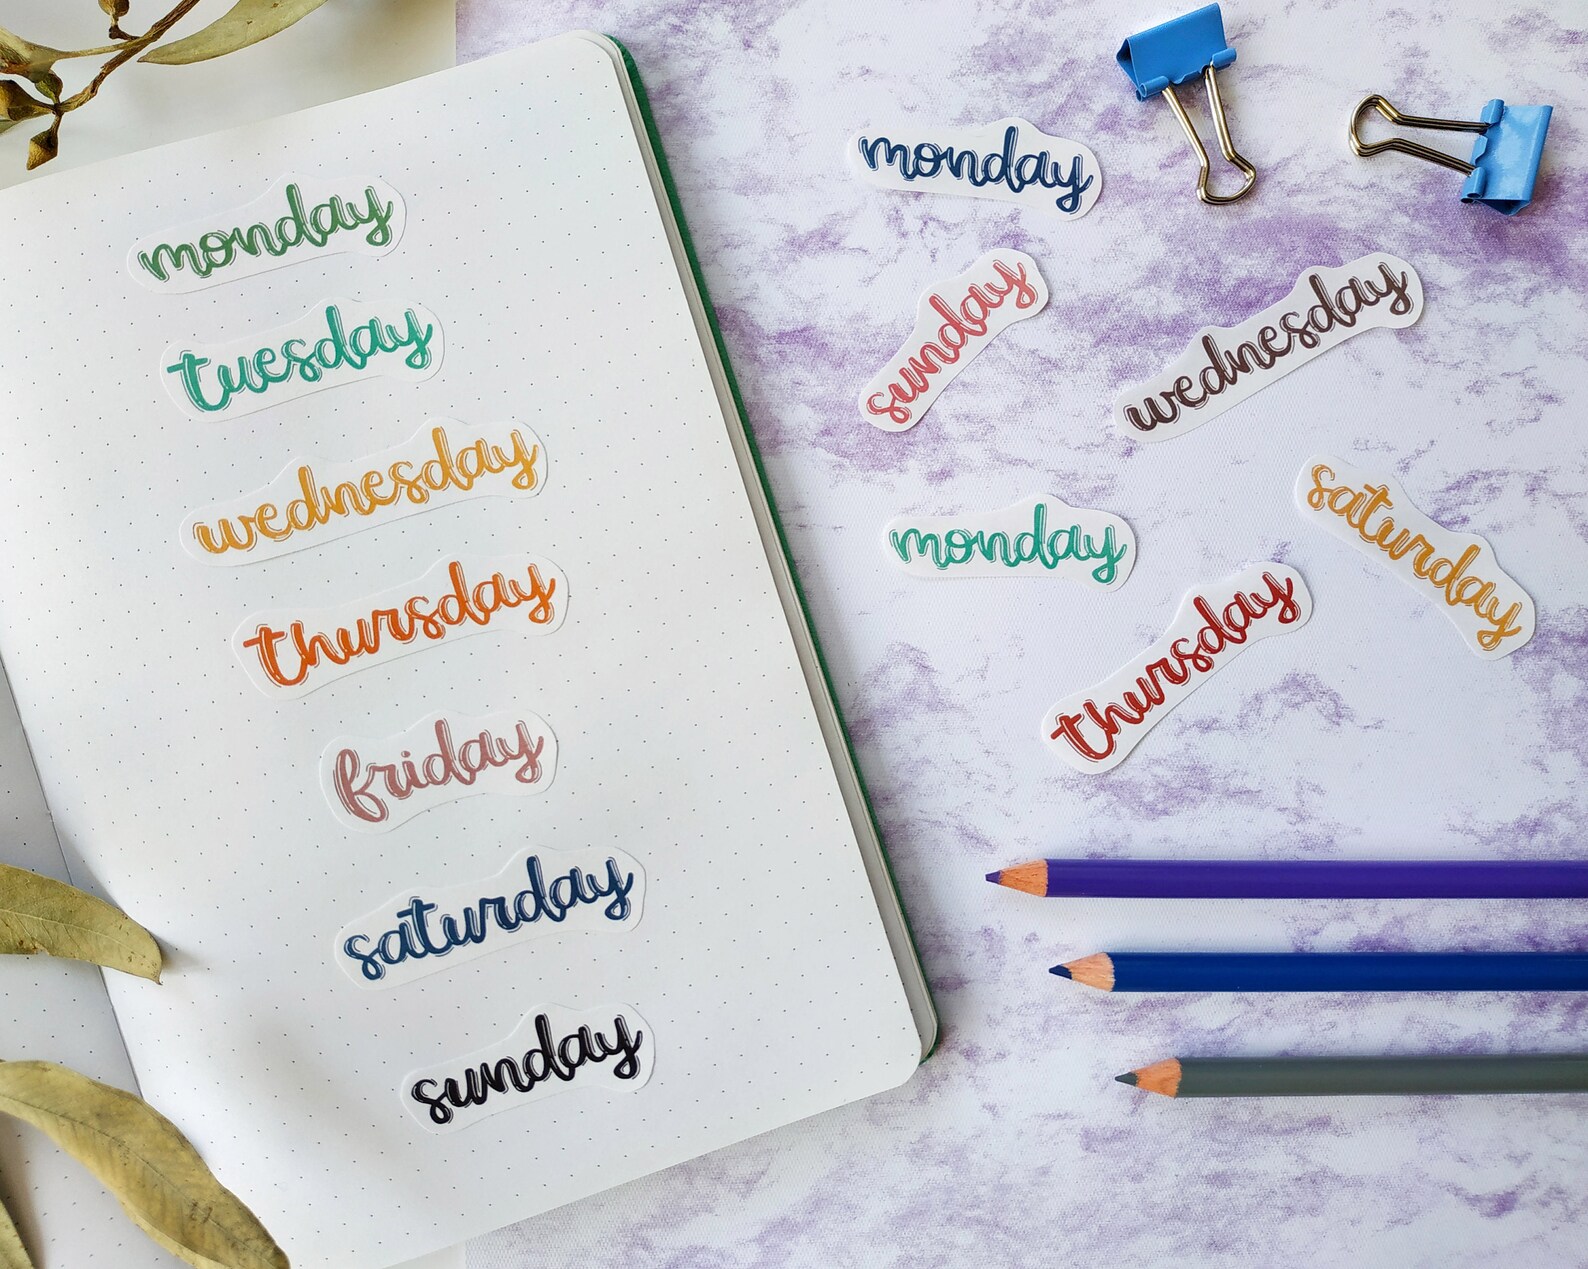 monday
tuesday
wednesday
thursday
friday
saturday
sunday
monday
sunday
wednesday
saturday
monday
thursday